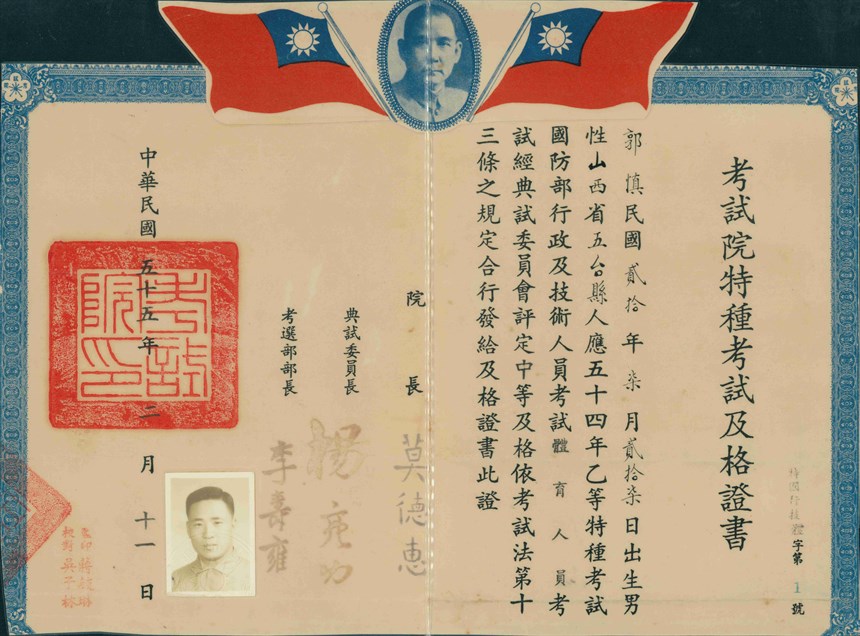 考試院特種考試及格證書
體字第1號
郭慎民國貳拾年柒月貳拾柒日出生男
性山西省五台縣人應五十四年乙等特種考試
國防部行政及技術人員考試體育人員考
試經典試委員會評定中等及格依考試法第十
三條之規定合行發給及格證書此證
院長 莫德惠
典試委員長 楊亮功
考選部部長 李壽雍
中華民國五十五年二月十一日
考試院印